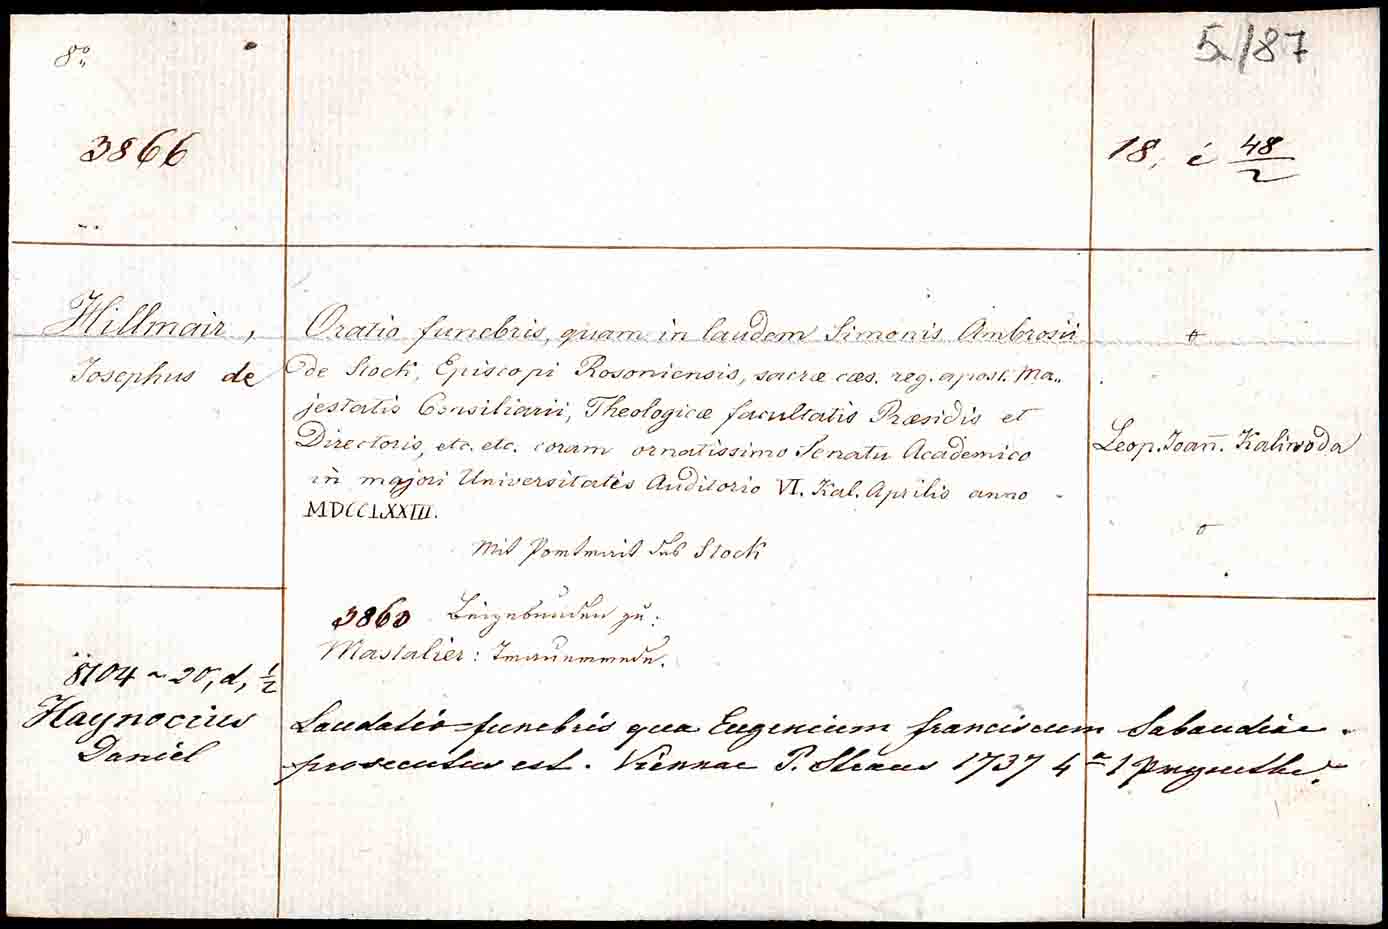 8°
5/87
3866
18, i 48/2
Hillmair,
Josephus de
Oratio funebris, quam in laudem Simonis Ambrosii
de Stock, Episcopi Rosoniensis, sacræ cæs. reg. apost. Ma-
jestatis Consiliarii, Theologicæ facultatis Præsidis et
Directoris, etc. etc. coram ornatissimo Senatu Academico
in majori Universitatis Auditorio VI. Kal. Aprilis anno
MDCCLXXIII.
Leop. Joan̄. Kaliwoda
Mit Portrait des Stock
3860 Beigebunden zu:
Mastalier: Trauerrede.
8104 ~ 20, d, 1/2
Haynocius
Daniel
Laudatio funebris qua Eugenium franciscum Sabaudiae
prosecutus est. Viennae P. Straus 1737 4° 1